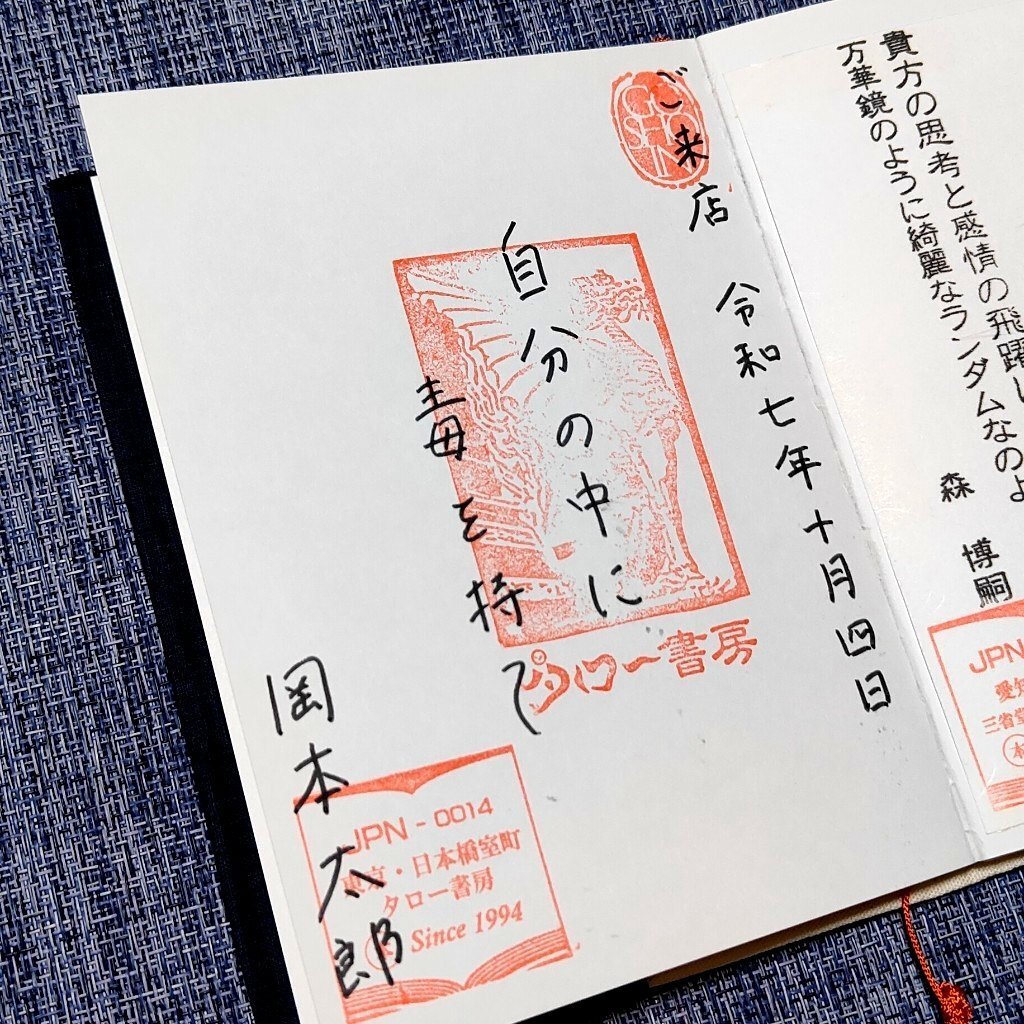 貴方の思考と感情の飛躍
万華鏡のように綺麗なランダムなのよ
森 博嗣
JPN
愛知
三省堂
本
GO
SHO
IN
ご来店 令和七年十月四日
自分の中に
毒を持て
岡本太郎
タロー書房
JPN - 0014
東京・日本橋室町
タロー書房
Since 1994